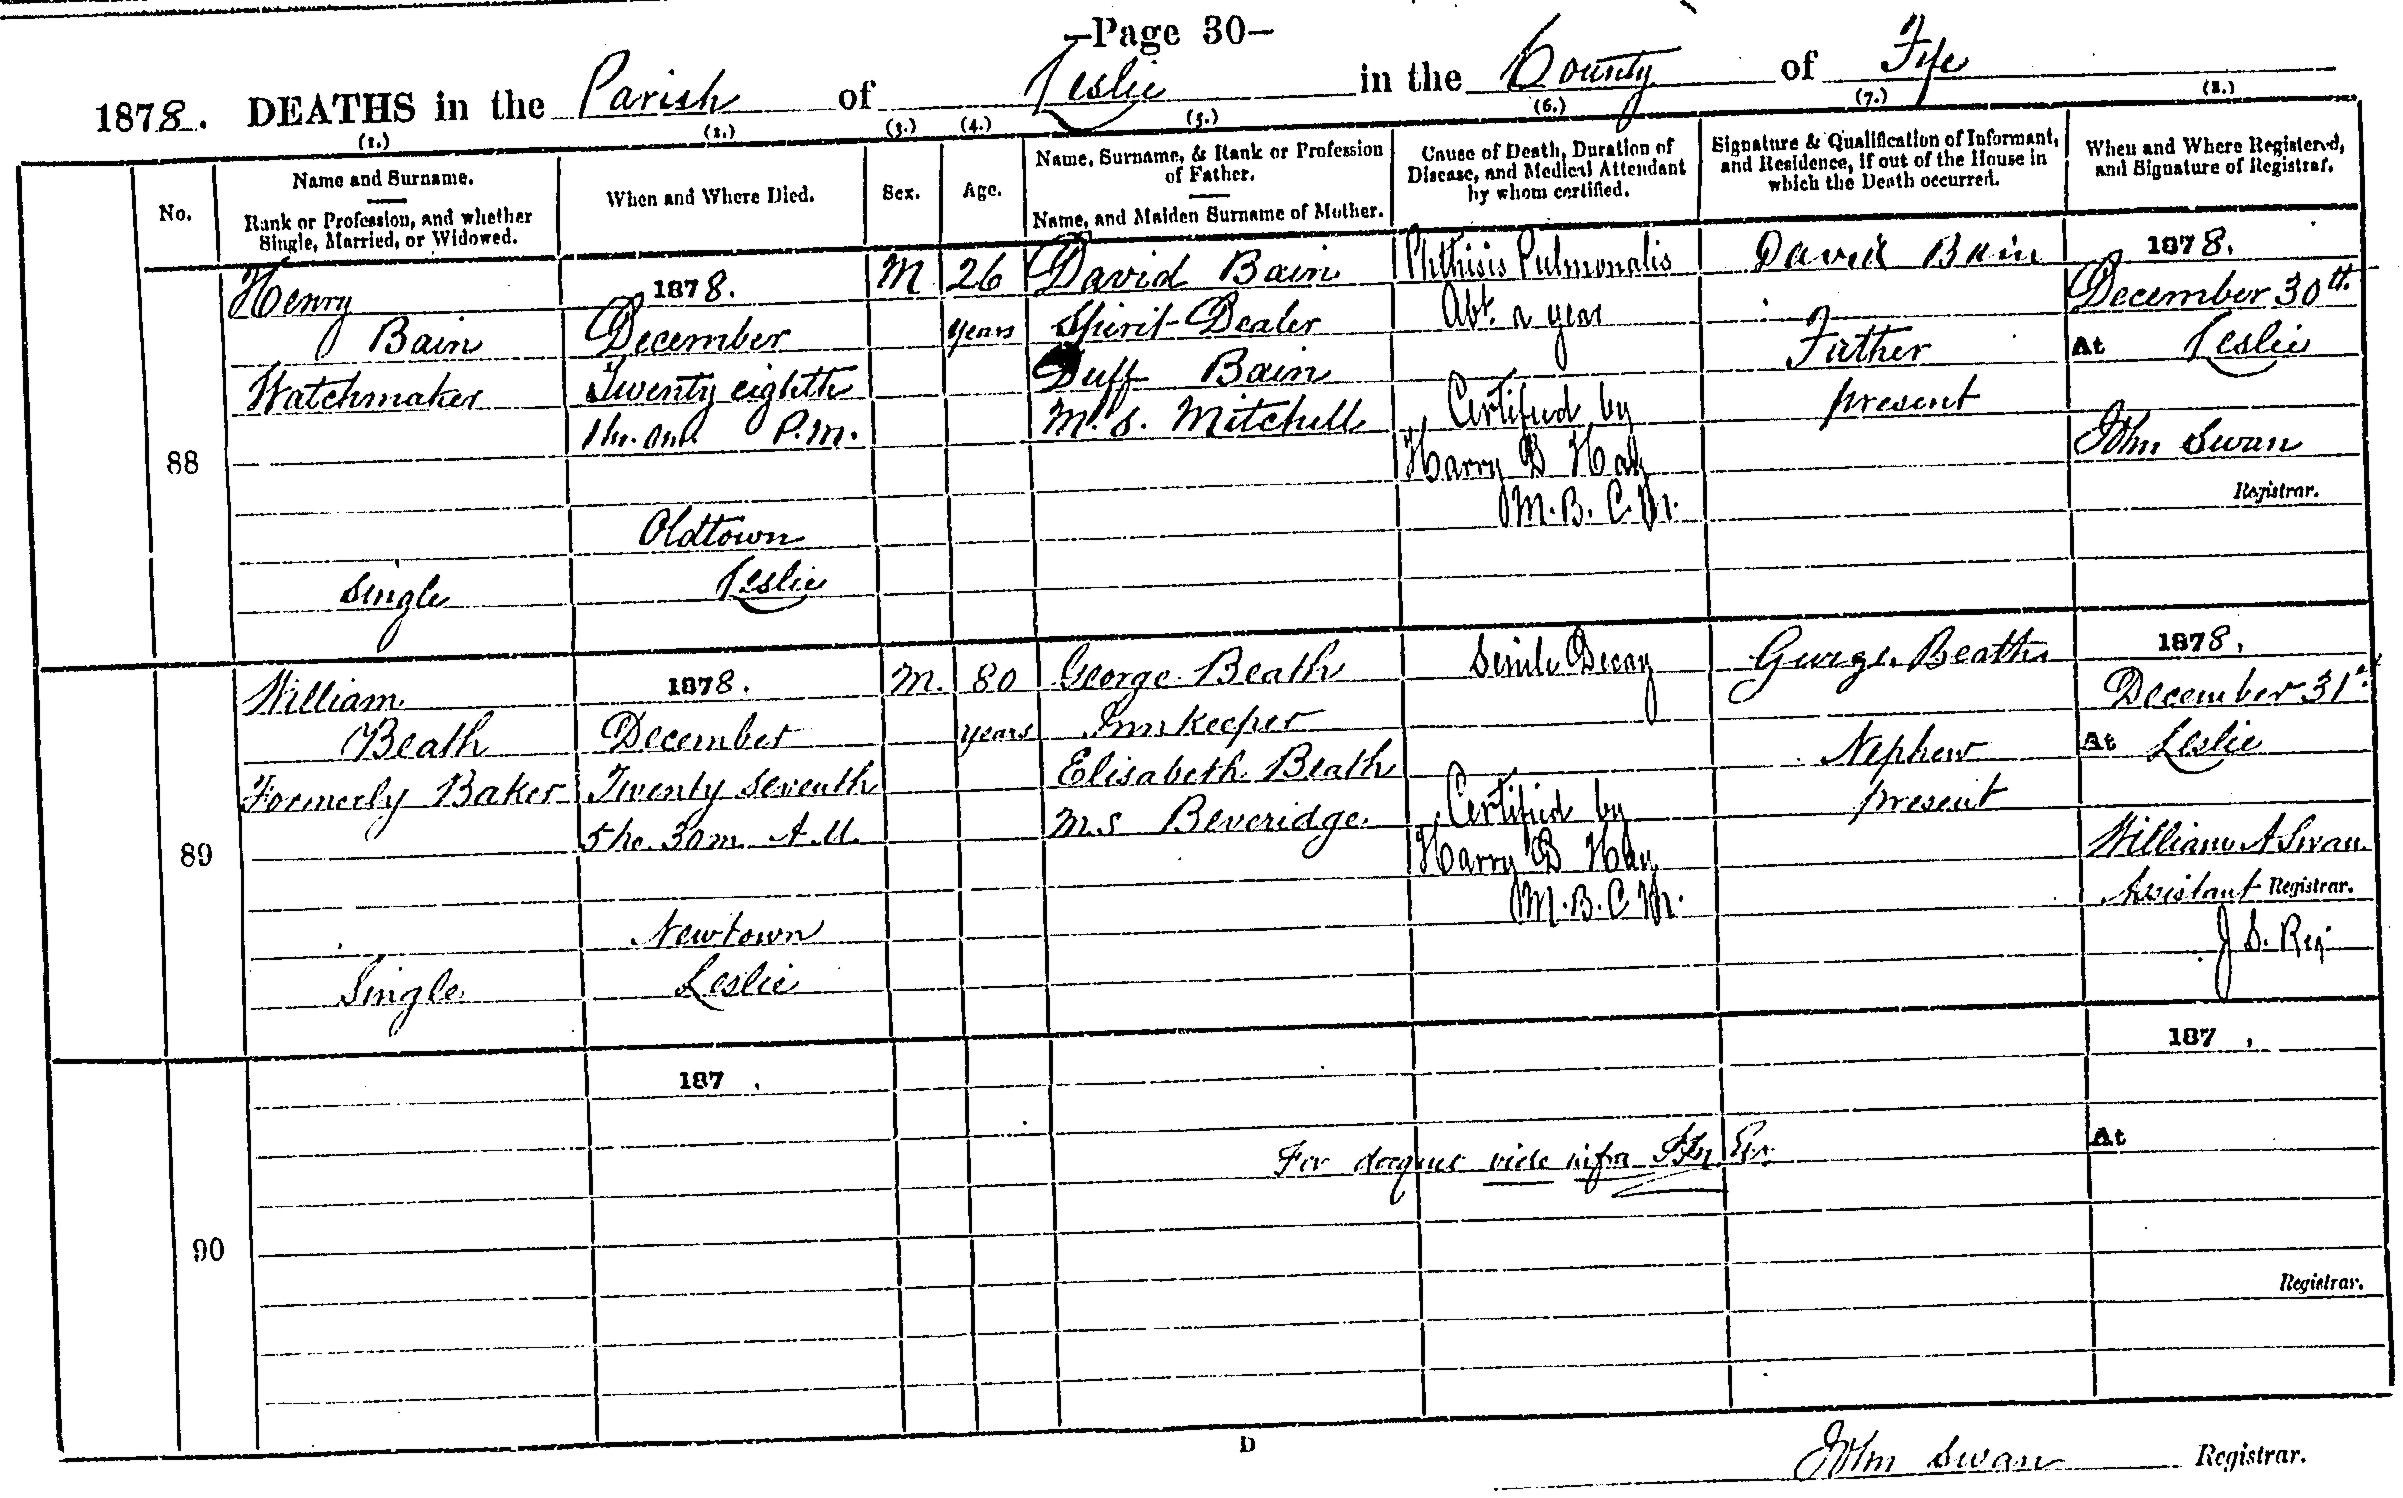 -Page 30-
1878. DEATHS in the Parish of Leslie in the County of Fife
(1.) (2.) (3.) (4.) (5.) (6.) (7.) (8.)
No.
Name and Surname.
Rank or Profession, and whether
Single, Married, or Widowed.
When and Where Died.
Sex.
Age.
Name, Surname, & Rank or Profession
of Father.
Name, and Maiden Surname of Mother.
Cause of Death, Duration of
Disease, and Medical Attendant
by whom certified.
Signature & Qualification of Informant,
and Residence, if out of the House in
which the Death occurred.
When and Where Registered,
and Signature of Registrar.
88
Henry
Bain
Watchmaker
Single
1878.
December
Twenty eighth
P.M.
Oldtown
Leslie
M
26
years
David Bain
Spirit Dealer
Duff Bain
M.S. Mitchell
Phthisis Pulmonalis
Abt. a year
Certified by
Harry B Hay
M.B. C.M.
David Bain
Father
present
1878.
December 30th
At Leslie
John Swan
Registrar.
89
William
Beath
Formerly Baker
Single
1878.
December
Twenty seventh
5 h. 30 m. A.M.
Newtown
Leslie
M.
80
years
George Beath
Innkeeper
Elisabeth Beath
M.S Beveridge
Senile Decay
Certified by
Harry B Hay
M.B. C.M.
George Beath
Nephew
present
1878.
December 31st
At Leslie
William A Swan
Assistant Registrar.
J S. Regr
90
187 .
For docquet vide infra
187 .
At
Registrar.
D
John Swan Registrar.